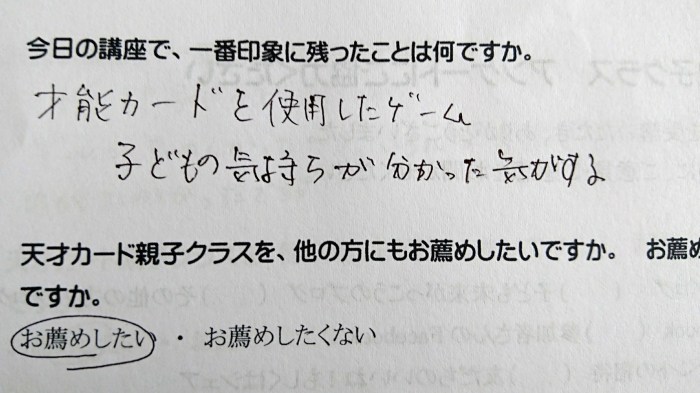 今日の講座で、一番印象に残ったことは何ですか。
才能カードを使用したゲーム
子どもの気持ちが分かった気がする
天才カード親子クラスを、他の方にもお薦めしたいですか。 お薦め
ですか。
お薦めしたい ・ お薦めしたくない